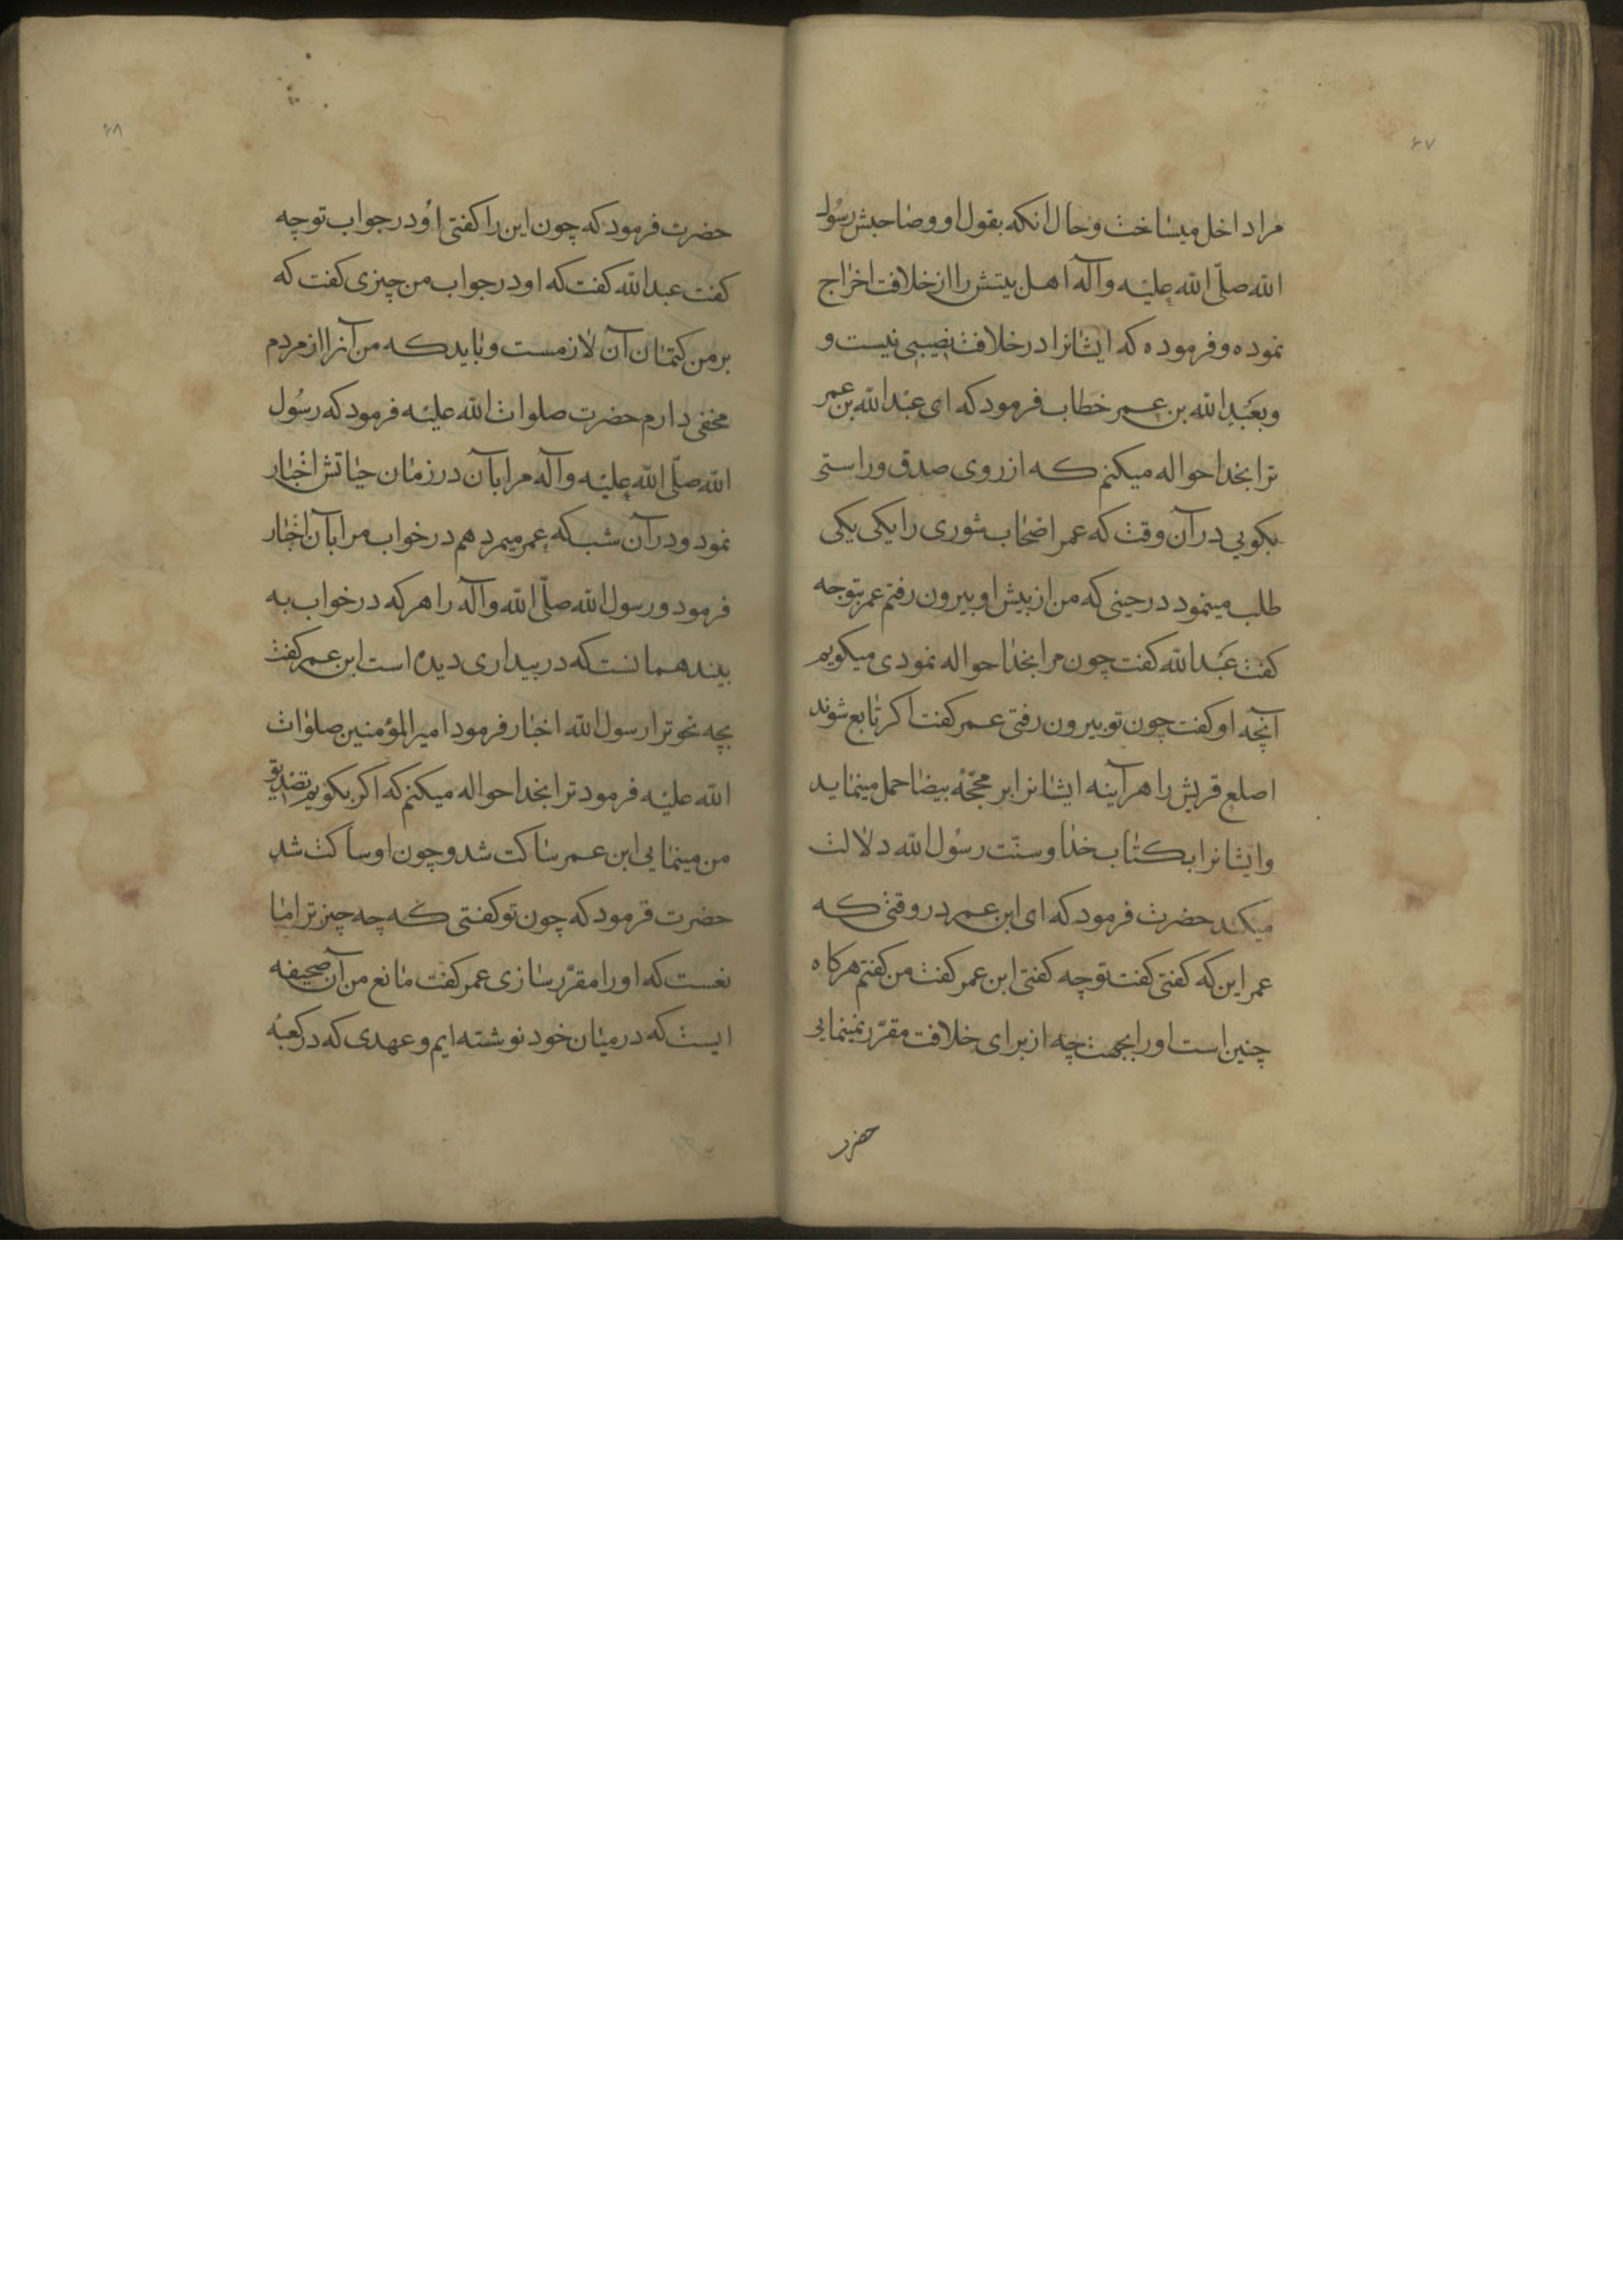 ۶۷
مرا داخل میساخت و حال انکه بقول او و صاحبش رسول
الله صلّی الله علیه و آله اهل بیتش را از خلافت اخراج
نموده و فرموده که ایشانرا در خلافت نصیبی نیست و
و بعَبْدِ الله بن عمر خطاب فرمود که ای عبد الله بن عمر
ترا بخدا حواله میکنم که از روی صدق و راستی
بکویی در آن وقت که عمر اصحاب شوری را یکی یکی
طلب مینمود در حینی که من از پیش او بیرون رفتم عمر بتو چه
کفت عَبْد الله کفت چون مرا بخدا حواله نمودی میکویم
آنچه او کفت چون تو بیرون رفتی عمر کفت اکر تابع شوند
اصلع قریش را هرآینه ایشانرا بر محجّهٔ بیضا حمل مینماید
و ایشانرا بکتاب خدا و سنّت رسول الله دلالت
میکند حضرت فرمود که ای ابن عمر در وقتی که
عمر این که کفتی کفت تو چه کفتی ابن عمر کفت من کفتم هرکاه
چنین است او را بجهت چه از برای خلافت مقرّر نمینمایی
حضرت
۶۸
حضرت فرمود که چون این را کفتی اوُ در جواب تو چه
کفت عبد الله کفت که او در جواب من چیزی کفت که
بر من کتمان آن لازمست و باید که من آنرا از مردم
مخفی دارم حضرت صلوات الله علیه فرمود که رسُول
الله صلّی الله علیه و آله مرا بآن در زمان حیاتش اخبار
نمود و در آن شب که عمر میمرد هم در خواب مرا بآن اخبار
فرمود و رسول الله صلّی الله و آله را هر که در خواب به
بیند همانست که در بیداری دیده است ابن عمر کفت
بچه نحو ترا رسول الله اخبار فرمود امیر المؤمنین صلوات
الله علیه فرمود ترا بخدا حواله میکنم که اکر بکویم تصدیق
من مینمایی ابن عمر ساکت شد و چون او ساکت شد
حضرت فرمود که چون تو کفتی که چه چیز ترا ما
نعست که او را مقرّر سازی عمر کفت مانع من آن صحیفه
ایست که در میان خود نوشته ایم و عهدی که در کعبه